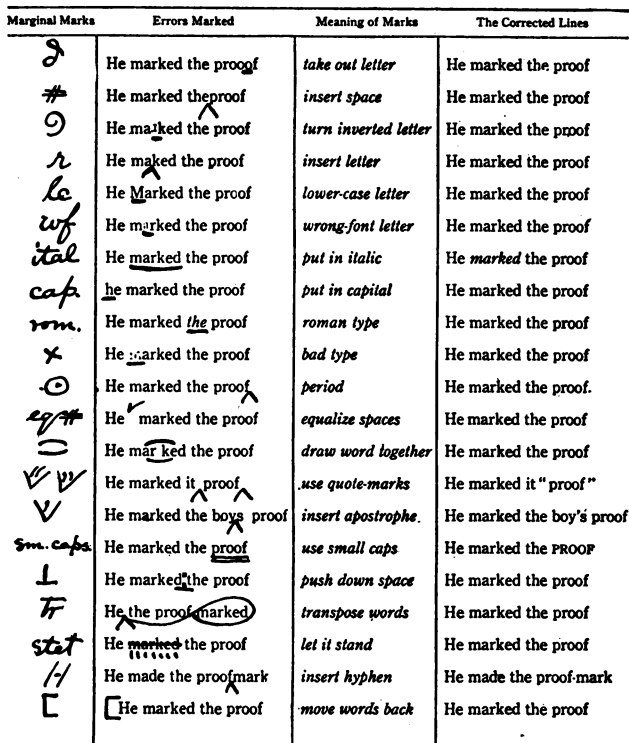 Marginal Marks Errors Marked Meaning of Marks The Corrected Lines
He marked the prooof take out letter He marked the proof
# He marked theproof insert space He marked the proof
9 He marked the proof turn inverted letter He marked the proof
r He maked the proof insert letter He marked the proof
lc He Marked the proof lower-case letter He marked the proof
wf He marked the proof wrong-font letter He marked the proof
ital He marked the proof put in italic He marked the proof
cap. he marked the proof put in capital He marked the proof
rom. He marked the proof roman type He marked the proof
× He marked the proof bad type He marked the proof
⊙ He marked the proof period He marked the proof.
eq# He marked the proof equalize spaces He marked the proof
He mar ked the proof draw word together He marked the proof
He marked it proof use quote-marks He marked it "proof"
He marked the boys proof insert apostrophe. He marked the boy's proof
Sm. caps. He marked the proof use small caps He marked the PROOF
⊥ He marked the proof push down space He marked the proof
Tr He the proof marked transpose words He marked the proof
stet He marked the proof let it stand He marked the proof
/-/ He made the proofmark insert hyphen He made the proof-mark
[ [He marked the proof move words back He marked the proof